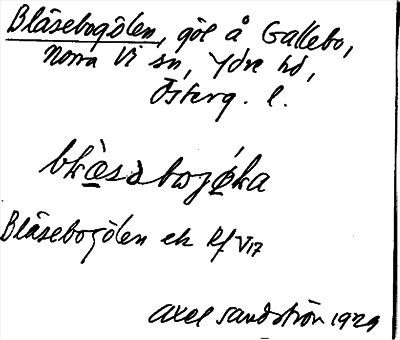 Bläsebogölen, göl å Gallebo,
Norra Vi sn, Ydre hd,
Österg. l.
Bläsebogölen ek Rf V17
Axel Sandström 1929